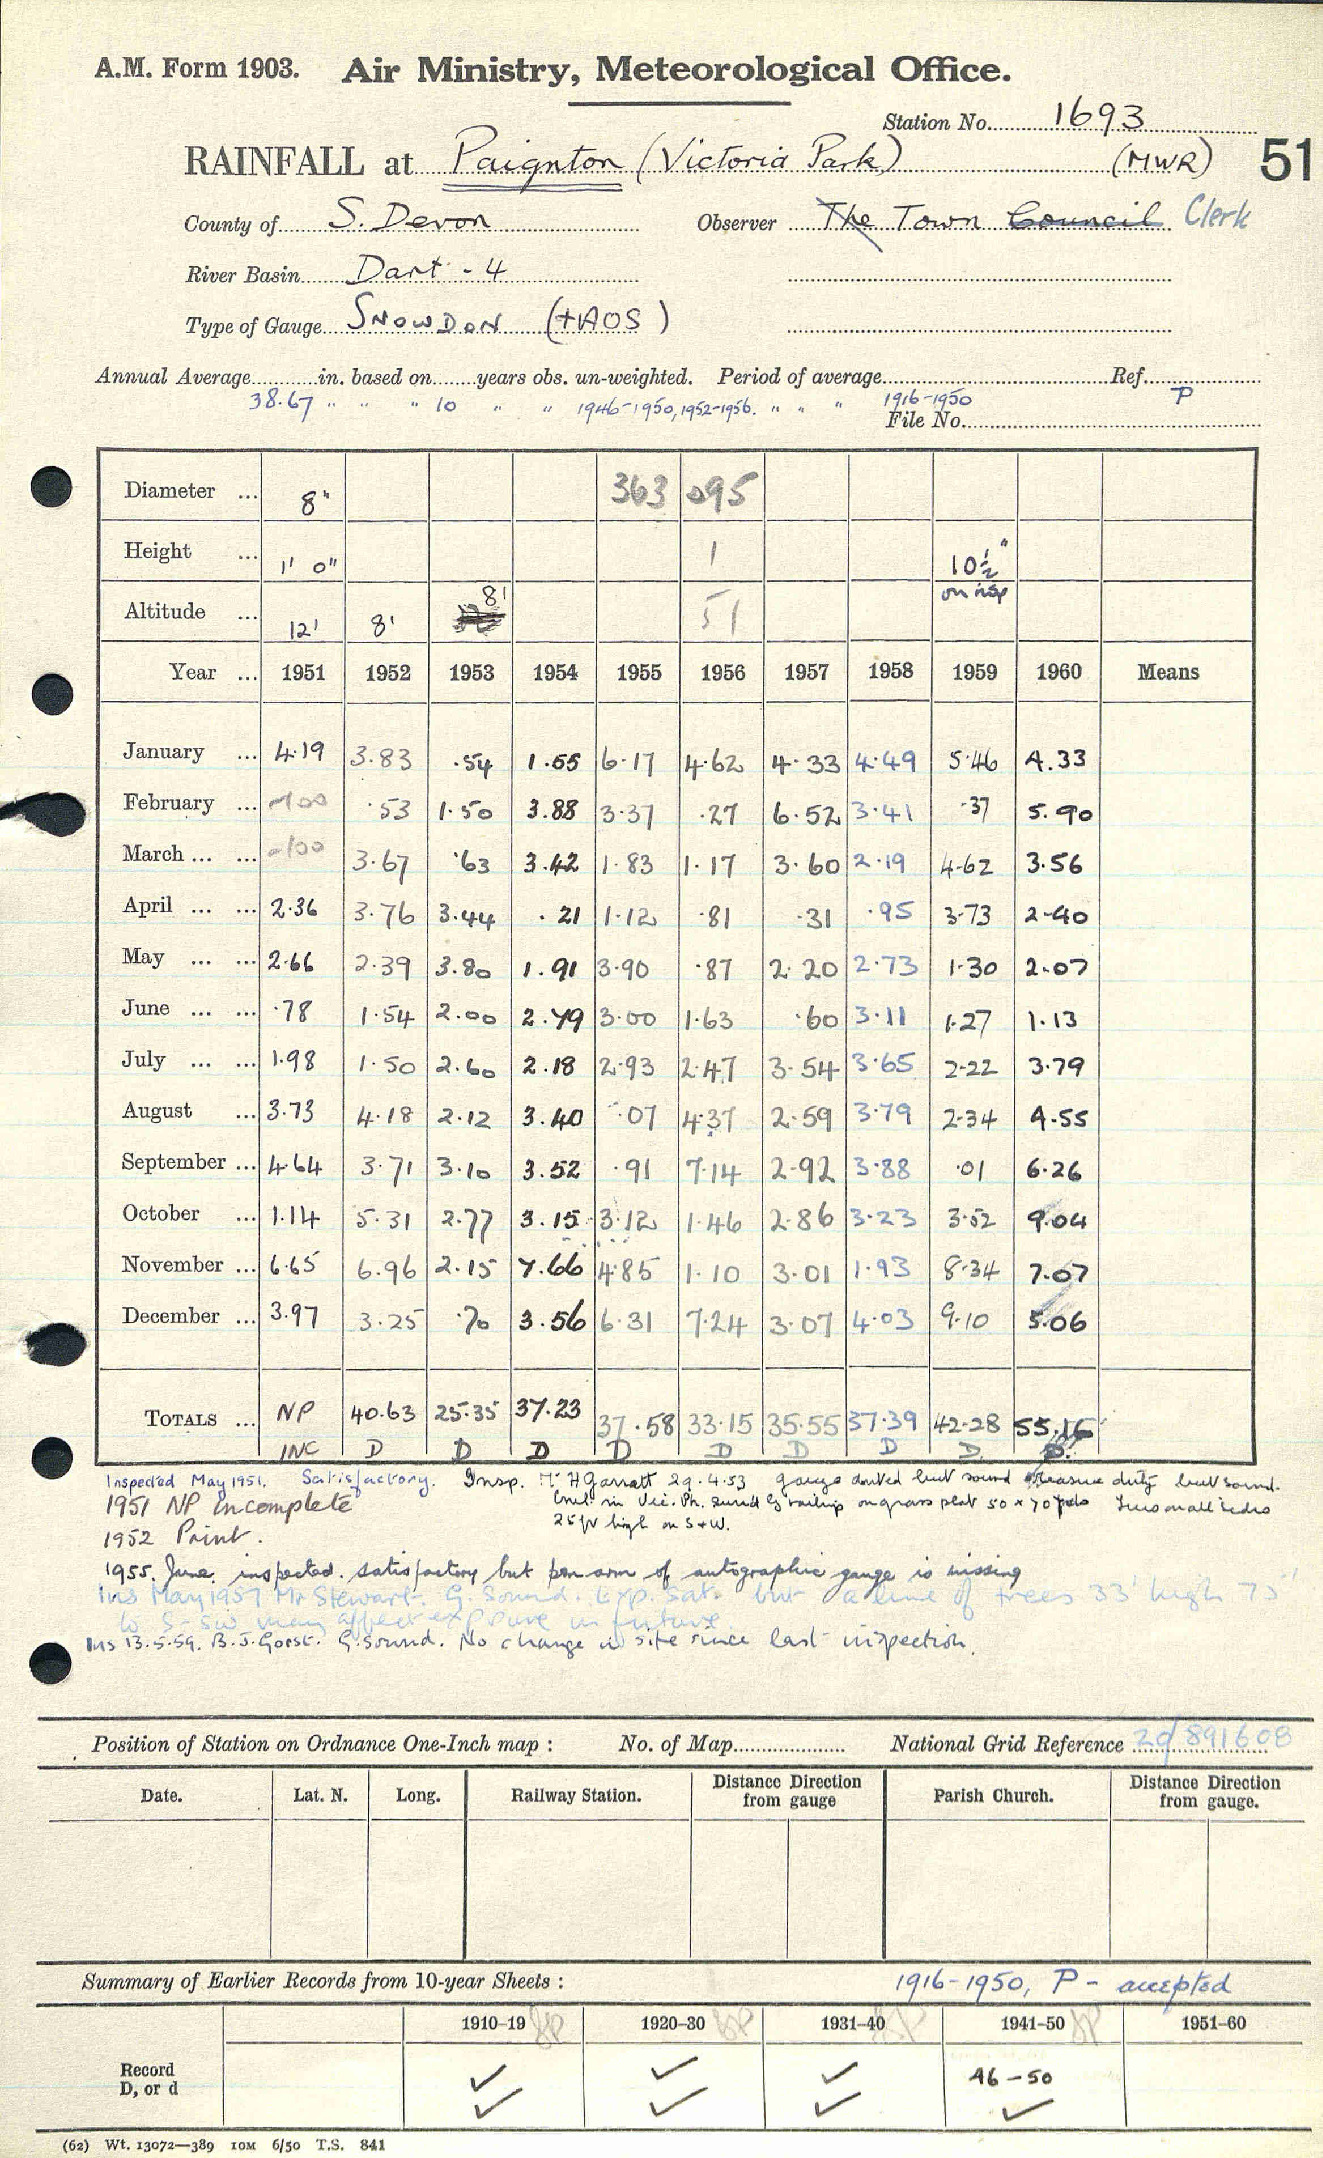 A.M. Form 1903. Air Ministry, Meteorological Office.
Station No. 1693
RAINFALL at Paignton (Victoria Park) (MWR) 51
County of S. Devon Observer The Town Council Clerk
River Basin Dart - 4
Type of Gauge SNOWDON (+AOS)
Annual Average in. based on years obs. un-weighted. Period of average Ref.
38.67 " " " 10 " " " 1946-1950, 1952-1956. " " " 1916-1950 P
File No.
Diameter ... 8" 363 095
Height ... 1' 0" 1 10½"
on insp
Altitude ... 12' 8' 8' 51
Year ... 1951 1952 1953 1954 1955 1956 1957 1958 1959 1960 Means
January ... 4.19 3.83 .54 1.55 6.17 4.62 4.33 4.49 5.46 4.33
February ... -100 .53 1.50 3.88 3.37 .27 6.52 3.41 .37 5.90
March ... ... -100 3.67 .63 3.42 1.83 1.17 3.60 2.19 4.62 3.56
April ... ... 2.36 3.76 3.44 .21 1.12 .81 .31 .95 3.73 2.40
May ... ... 2.66 2.39 3.80 1.91 3.90 .87 2.20 2.73 1.30 2.07
June ... ... .78 1.54 2.00 2.79 3.00 1.63 .60 3.11 1.27 1.13
July ... ... 1.98 1.50 2.60 2.18 2.93 2.47 3.54 3.65 2.22 3.79
August ... 3.73 4.18 2.12 3.40 .07 4.37 2.59 3.79 2.34 4.55
September ... 4.64 3.71 3.10 3.52 .91 7.14 2.92 3.88 .01 6.26
October ... 1.14 5.31 2.77 3.15 3.12 1.46 2.86 3.23 3.52 9.04
November ... 6.65 6.96 2.15 7.66 4.85 1.10 3.01 1.93 8.34 7.07
December ... 3.97 3.25 .70 3.56 6.31 7.24 3.07 4.03 9.10 5.06
TOTALS ... NP 40.63 25.35 37.23 37.58 33.15 35.55 37.39 42.28 55.16
INC D D D D D D D D D
Inspected May 1951. Satisfactory. Insp. Mr H Garratt 29.4.53 gauge dented but sound measure dirty but sound.
1951 NP incomplete in Vic. Pk. railing on grass plot 50 x 70
25 ft high on S+W.
1952 Print.
1955. June. inspected. satisfactory but pen arm of autographic gauge is missing
Ins May 1957 Mr Stewart. G. Sound. Exp. Sat. but a line of trees 33' high 75'
to S-SW may affect exposure in future
Ins 13.5.59. B.J. Gorst. G. sound. No change in site since last inspection.
Position of Station on Ordnance One-Inch map : No. of Map National Grid Reference 20/891608
Date. Lat. N. Long. Railway Station. Distance Direction from gauge Parish Church. Distance Direction from gauge.
Summary of Earlier Records from 10-year Sheets : 1916-1950, P - accepted
1910-19 1920-30 1931-40 1941-50 1951-60
Record
D, or d ✓ ✓ ✓ 46-50
✓ ✓ ✓ ✓
(62) Wt. 13072—389 10M 6/50 T.S. 841